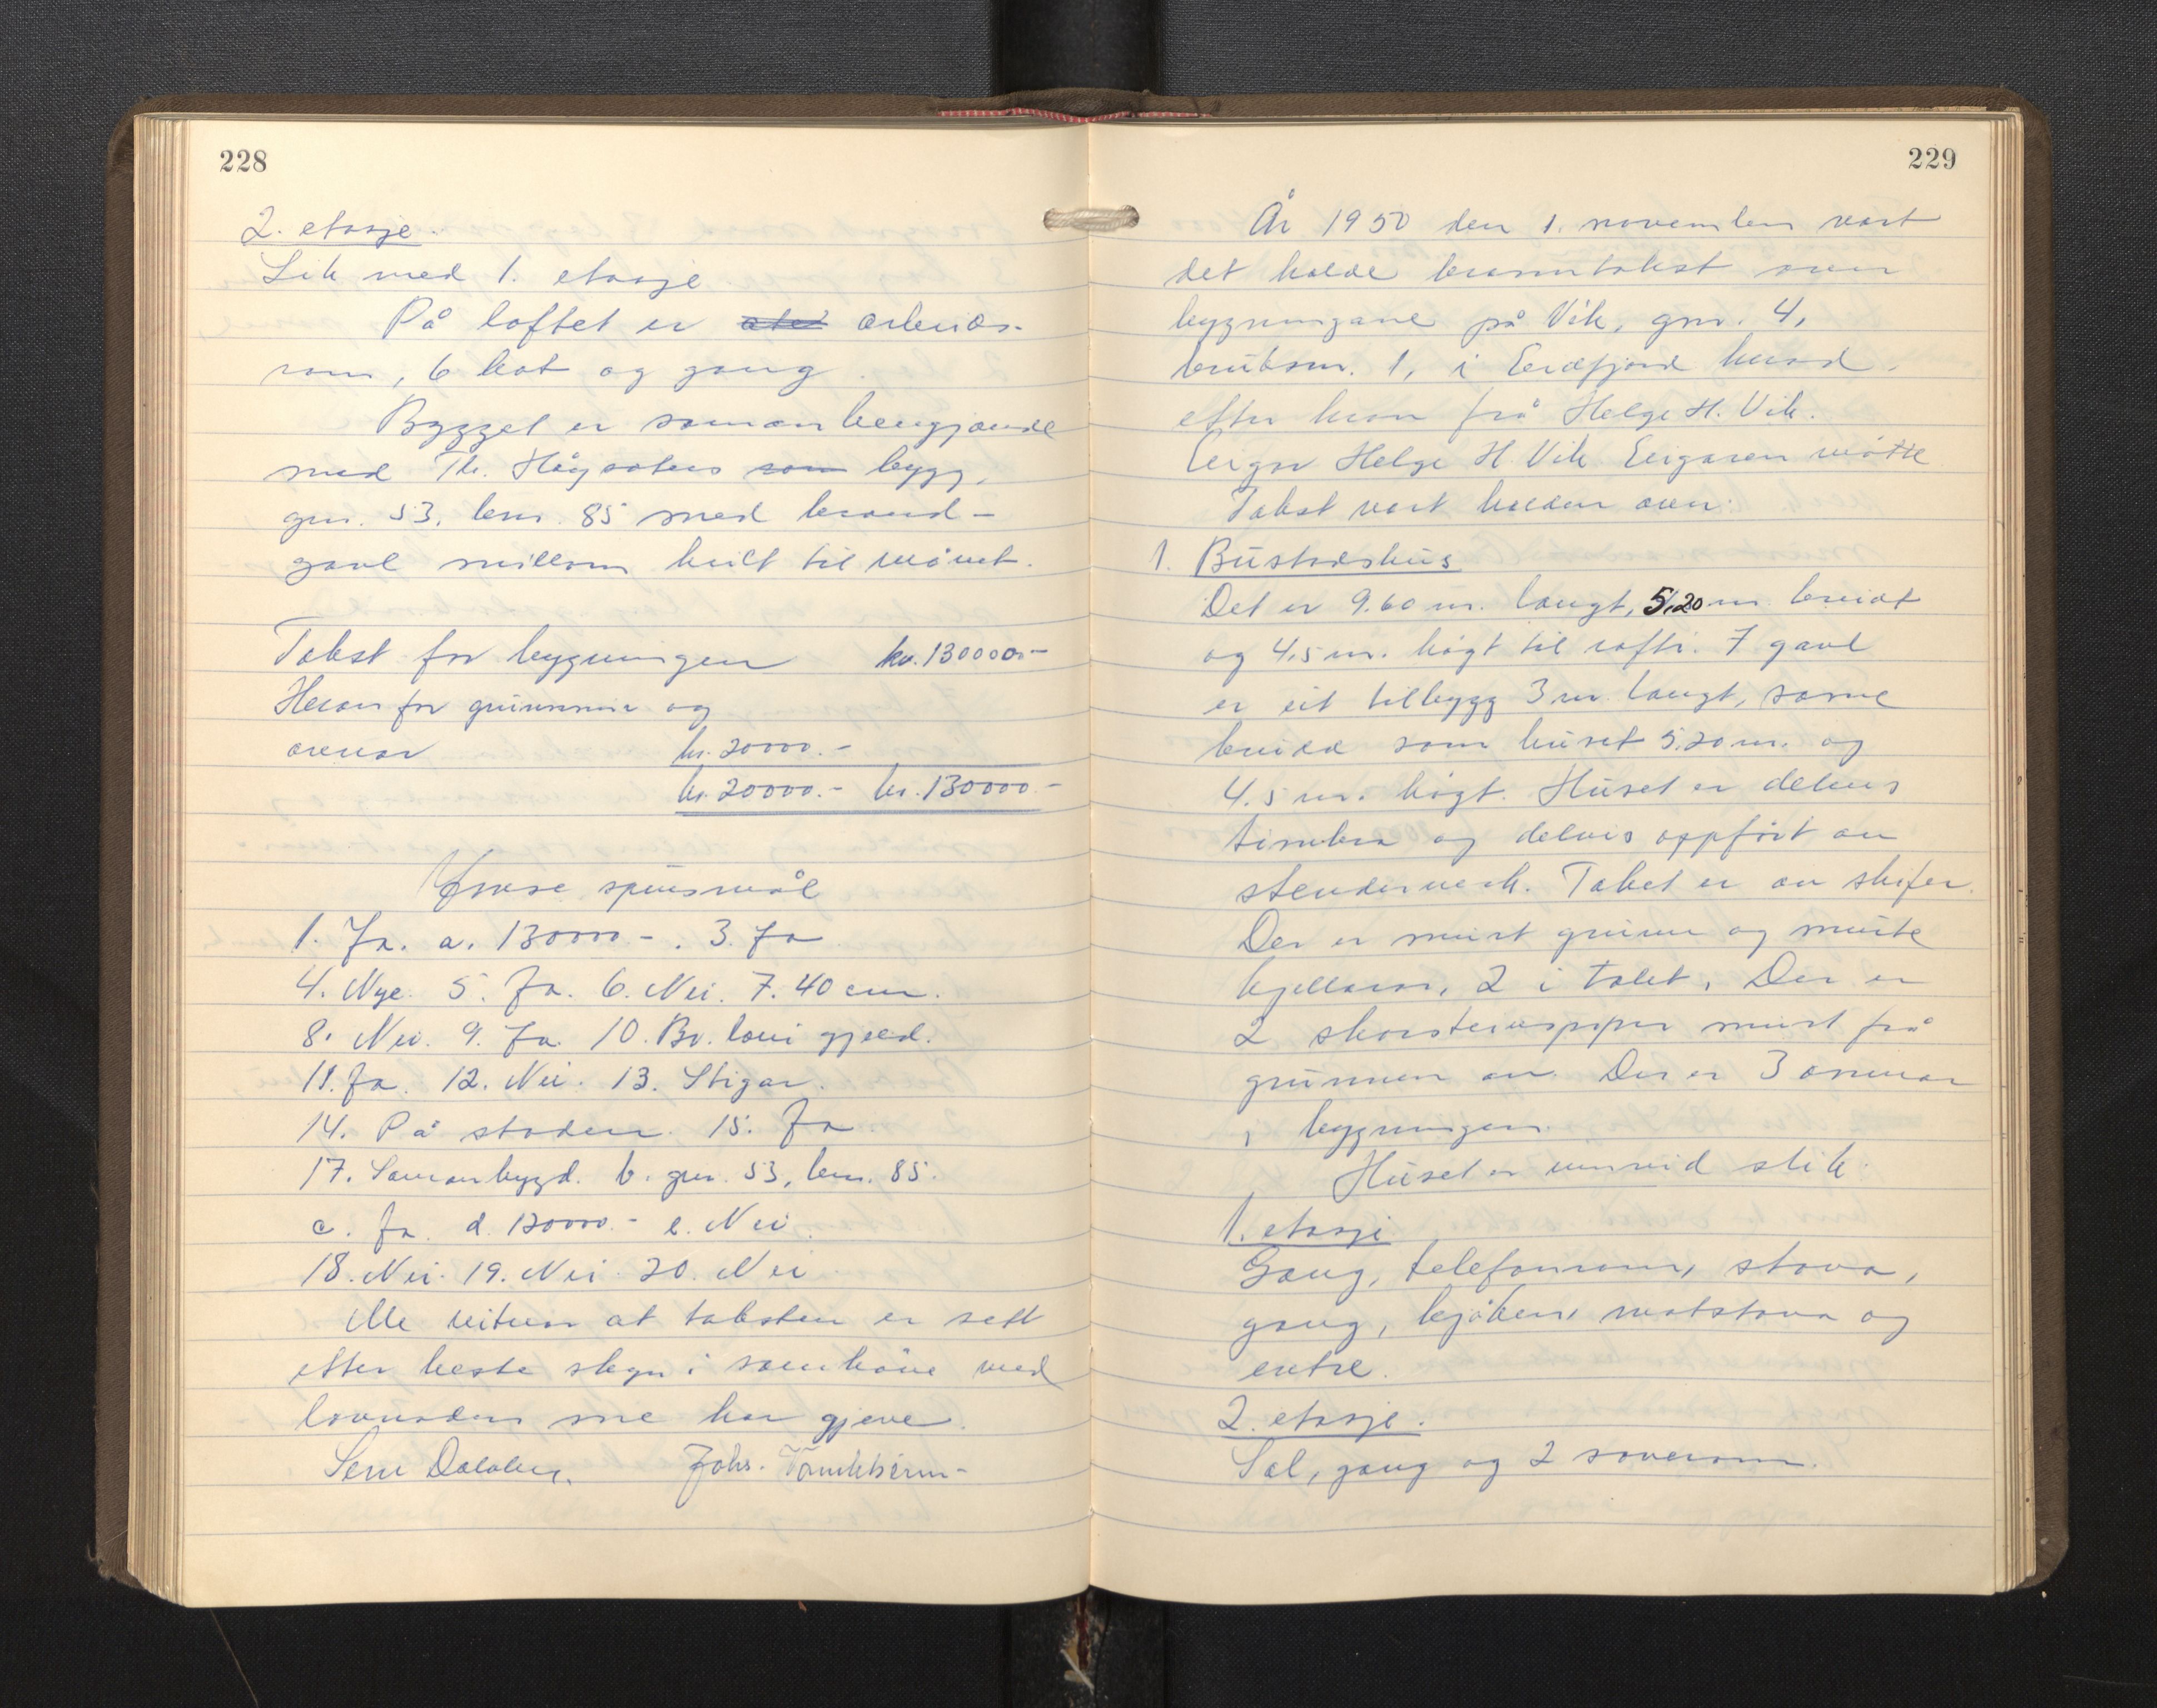 228
2. etasje.
Lik med 1. etasje
På loftet er arbeids-
rom, 6 kot og gang.
Bygget er samanhengjande
med Th. Hågåters som bygg,
gnr. 53, bnr. 85 med brand-
gavl millom heilt til mönet.
Takst for bygningen kr. 130000.-
Herav for grunnmur og
ovnar kr. 20000.-
kr. 20000.- kr. 130000.-
Ymse spursmål
1. Ja. a. 130000.-. 3. Ja
4. Nye. 5. Ja. 6. Nei. 7. 40 cm.
8. Nei. 9. Ja. 10. Br. lovi gjeld.
11. Ja. 12. Nei. 13. Stigar.
14. På staden. 15. Ja
17. Samanbygd. b. gnr. 53, bnr. 85.
c. Ja. d. 130000.- e. Nei.
18. Nei. 19. Nei. 20. Nei.
Me vitnar at taksten er sett
etter beste skyn i samhöve med
lovnaden me har gjeve.
Johs.
229
År 1950 den 1. november vart
det halde branntakst over
bygningane på Vik, gnr. 4,
bruksnr. 1, i Eidfjord herad,
etter krav frå Helge H. Vik.
Eigar Helge H. Vik. Eigaren mötte
Takst vart halden over:
1. Bustadshus
Det er 9.60 m. langt, 5,20 m. breidt
og 4,5 m. högt til raft. I gavl
er eit tilbygg 3 m. langt, same
breidd som huset 5.20 m. og
4.5 m. högt. Huset er delvis
timbra og delvis oppfört av
stenderverk. Taket er av skifer.
Der er murt grunn og murte
kjellarar, 2 i talet. Der er
2 skorsteinspipor murt frå
grunnen av. Der er 3 omnar
i bygningen.
Huset er innreid slik:
1. etasje
Gang, telefonrom, stova,
gang, kjöken, matstova og
entre.
2. etasje.
Sal, gang og 2 soverom.